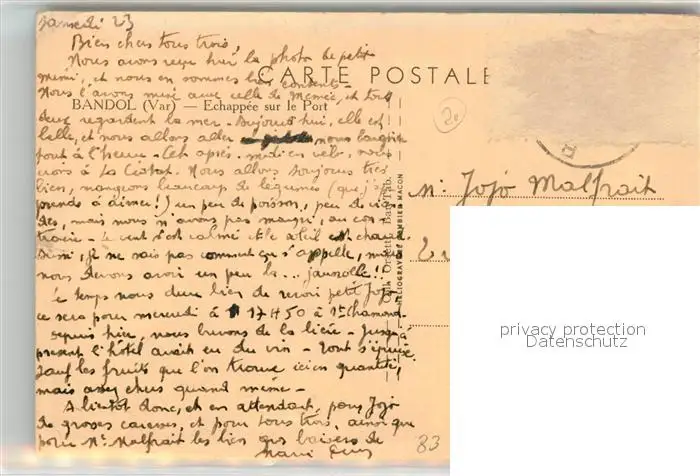 samedi 23
Bien chers tous trois,
Nous avons reçu hier la photo de petit
mimi, et nous en sommes bien contents -
CARTE POSTALE
Nous l'avons mise avec celle de Mémée, et tous
BANDOL (Var) — Echappée sur le Port
deux regardent la mer - Aujourd'hui, elle est
belle, et nous allons aller nous baigner
tout à l'heure - Cet après-midi en vélo, nous
irons à La Ciotat. Nous allons toujours très
bien, mangeons beaucoup de légumes (que j'ap
prends à aimer!) un peu de poisson, peu de vian
des, mais nous n'avons pas maigri, au con-
traire - Le vent s'est calmé et le soleil est chaud
aussi, je ne sais pas comment ça s'appelle, mais
nous devons avoir un peu la ... !!
Le temps nous dure bien de revoir petit Jojo
ce sera pour mercredi à 17H50 à St Chamond.
Depuis hier, nous buvons de la bière - Jusqu'à
présent l'hôtel avait eu du vin - Tout s'épuise
sauf les fruits que l'on trouve ici en quantité,
mais assez chers quand même -
A bientôt donc, et en attendant, pour Jojo
de grosses caresses, et pour tous trois, ainsi que
pour Me Malfrait les bien gros baisers de
20
HELIOGRAVURE COMBIER MACON
M. Jojo Malfrait
83
privacy protection
Datenschutz